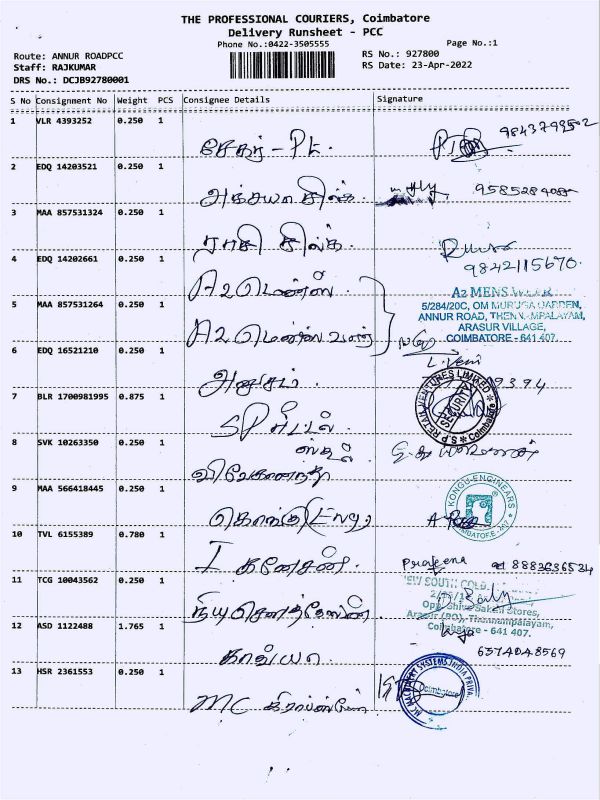 THE PROFESSIONAL COURIERS, Coimbatore
Delivery Runsheet - PCC
Phone No.:0422-3505555
Page No.:1
Route: ANNUR ROADPCC
RS No.: 927800
Staff: RAJKUMAR
RS Date: 23-Apr-2022
DRS No.: DCJB92780001
S No Consignment No Weight PCS Consignee Details Signature
1 VLR 4393252 0.250 1
சேகர் - PE.
2 EDQ 14203521 0.250 1
அக்சயா சில்க்.
3 MAA 857531324 0.250 1
ராசி சில்க்.
4 EDQ 14202661 0.250 1
9842115670.
A2 மென்ஸ்
A2 MENS WEAR
5 MAA 857531264 0.250 1
5/284/20C, OM MURUGA GARDEN,
ANNUR ROAD, THENNAMPALAYAM,
ARASUR VILLAGE,
COIMBATORE - 641 407.
A2 மென்ஸ்
6 EDQ 16521210 0.250 1
L. Veni
7 BLR 1700981995 0.875 1
S.P. RETAIL VENTURES LIMITED
SECURITY
Coimbatore
SP
8 SVK 10263350 0.250 1
விவேகானந்தா
9 MAA 566418445 0.250 1
KONGU ENGINEERS
கொங்கு (Engg)
10 TVL 6155389 0.780 1
I கணேசன்.
Prafeena
8883636534
11 TCG 10043562 0.250 1
NEW SOUTH COLD
Opp. Shiva Sakthi Stores,
Arasur (PO), Thennampalayam,
Coimbatore - 641 407.
12 ASD 1122488 1.765 1
காவ்யா.
6374048569
13 HSR 2361553 0.250 1
MC MACHINERY SYSTEMS INDIA PRIVA
Coimbatore
MC